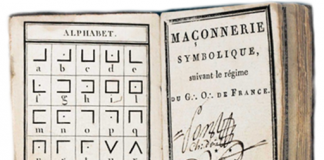 ALPHABET.
a b c d e
f g h i l
m n o p q
MAÇONNERIE
SYMBOLIQUE,
suivant le régime
DU G∴ O∴ DE FRANCE.